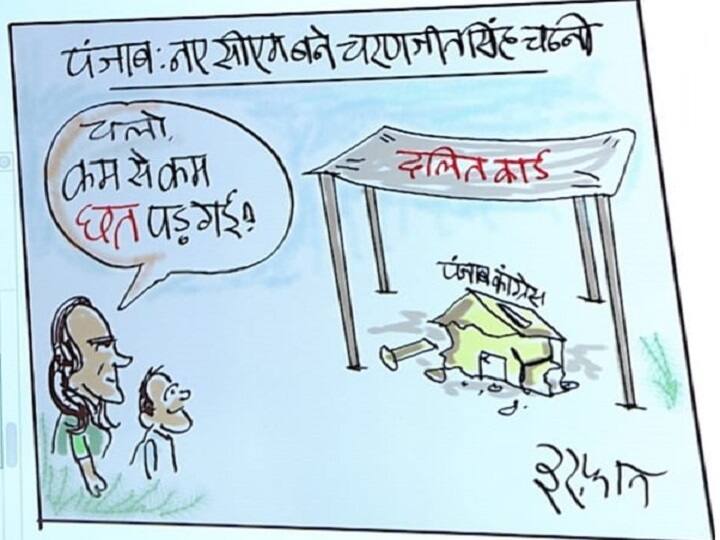 पंजाब: नए सीएम बने चरणजीत सिंह चन्नी
चलो,
कम से कम
छत पड़ गई!
दलित कार्ड
पंजाब कांग्रेस
इरफान